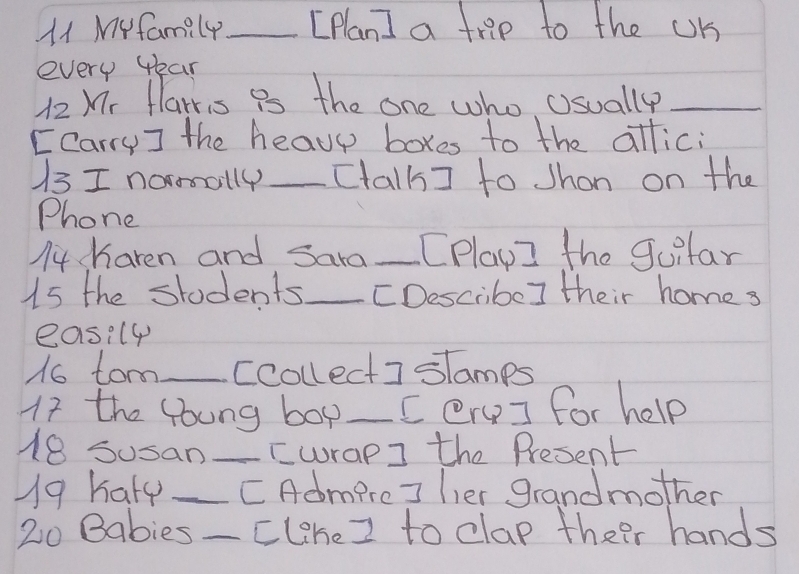 11 My family ____ [Plan] a trip to the UK
every year
12 Mr Harris is the one who usually ____
[Carry] the heavy boxes to the attic;
13 I normally ___ [talk] to Jhon on the
Phone
14 Karen and Sara __ [Play] the guitar
15 the students ___ [Describe] their homes
easily
16 tom ___ [Collect] stamps
17 the young boy __ [Cry] for help
18 Susan __ [wrap] the Present
19 Katy __ [Admire] her grandmother
20 Babies _ [like] to clap their hands